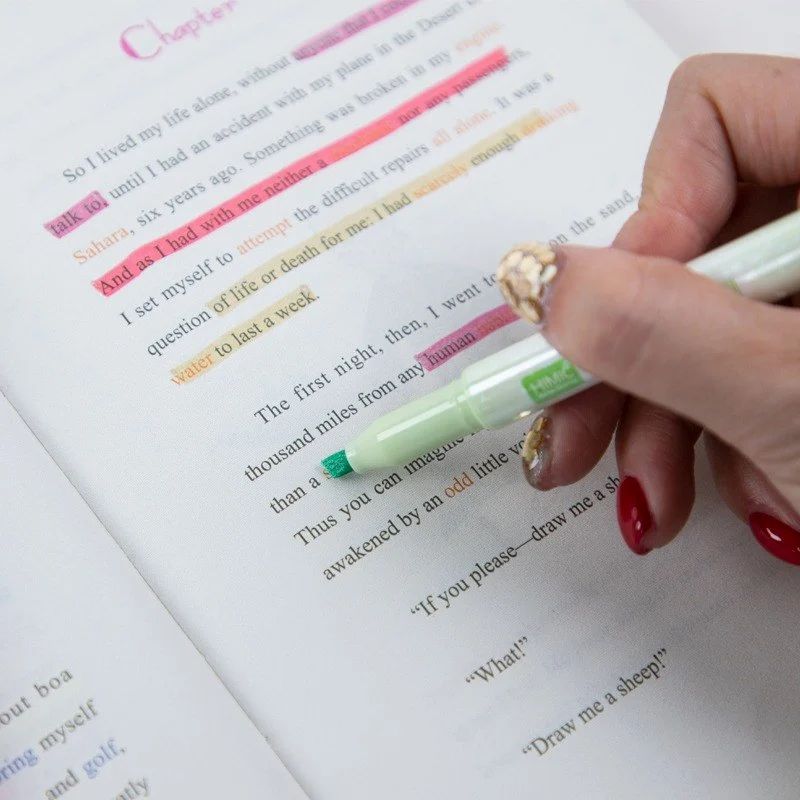 Chapter
So I lived my life alone, without anyone that I could
talk to, until I had an accident with my plane in the Desert of
Sahara, six years ago. Something was broken in my engine.
And as I had with me neither a nor any passengers,
I set myself to attempt the difficult repairs all alone. It was a
question of life or death for me: I had scarcely enough drinking
water to last a week.
The first night, then, I went to on the sand,
thousand miles from any human
than a
Thus you can imagine
awakened by an odd little
"If you please—draw me a
"What!"
"Draw me a sheep!"
out boa
myself
and golf,
HIMI